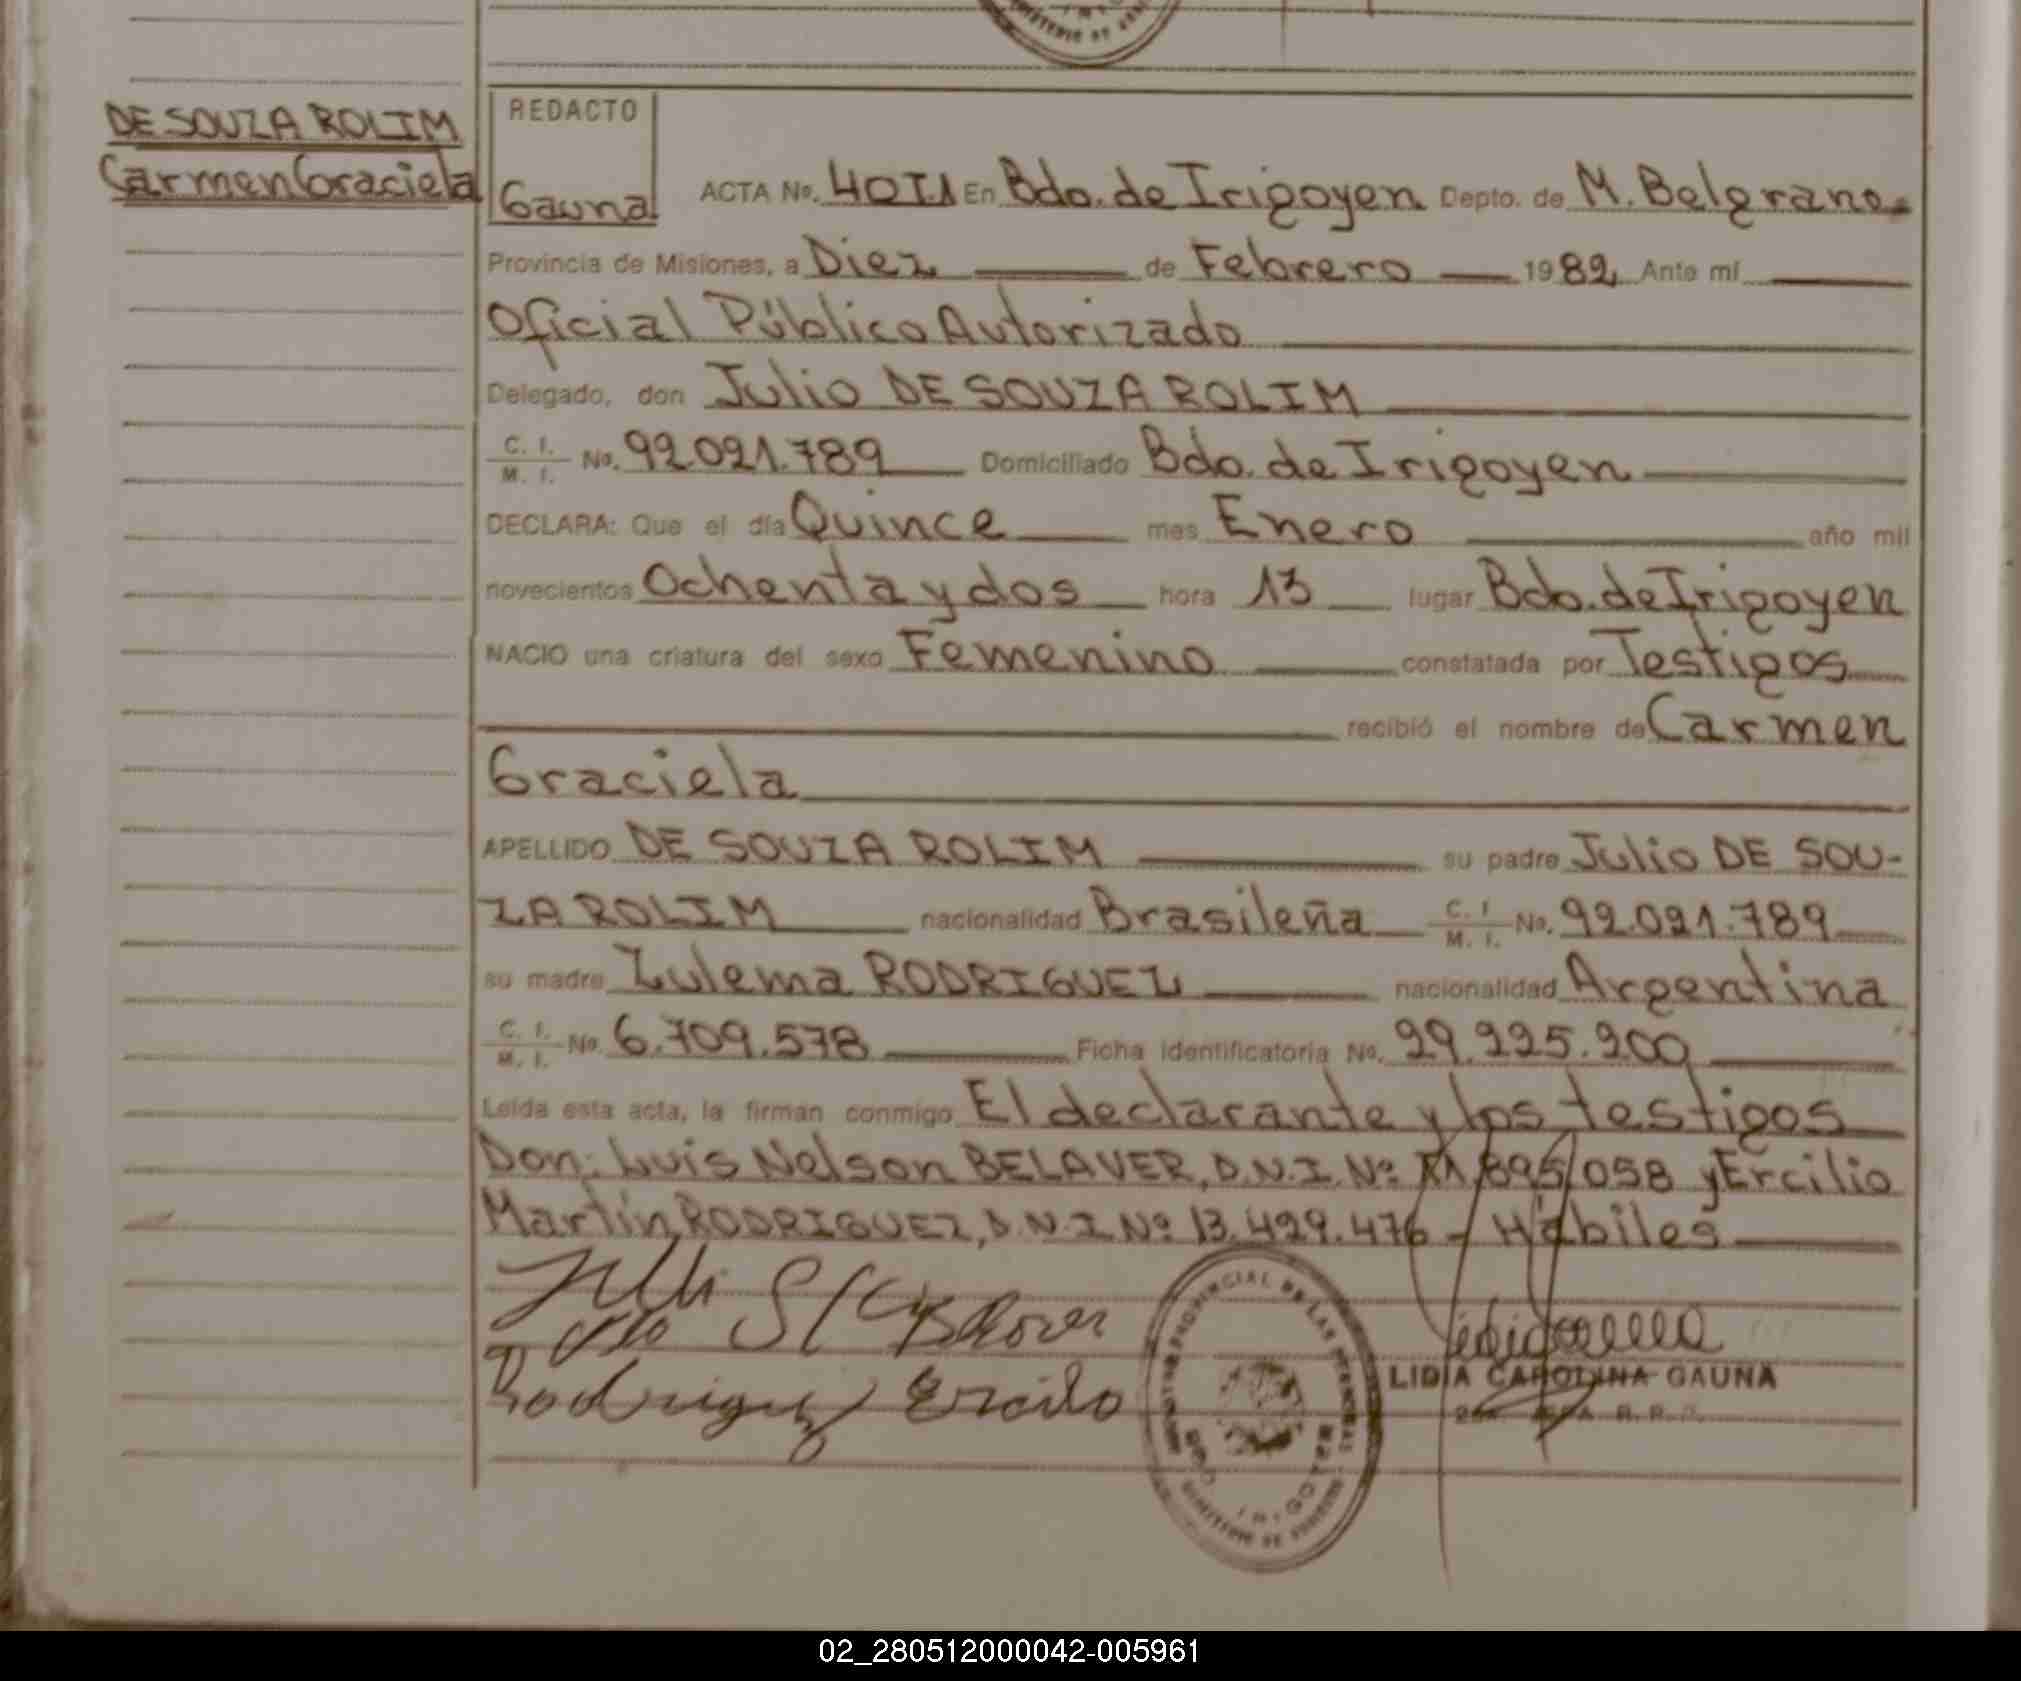 DE SOUZA ROLIM
Carmen Graciela
REDACTO
Gauna
ACTA No. 40TI En Bdo. de Irigoyen Depto. de M. Belgrano
Provincia de Misiones, a Diez de Febrero 1982 Ante mí
Oficial Público Autorizado
Delegado, don Julio DE SOUZA ROLIM
C. I. M. I. No. 92.021.789 Domiciliado Bdo. de Irigoyen
DECLARA: Que el día Quince mes Enero año mil
novecientos Ochenta y dos hora 13 lugar Bdo. de Irigoyen
NACIO una criatura del sexo Femenino constatada por Testigos
recibió el nombre de Carmen
Graciela
APELLIDO DE SOUZA ROLIM su padre Julio DE SOU-
ZA ROLIM nacionalidad Brasileña C. I. M. I. No. 92.021.789
su madre Zulema RODRIGUEZ nacionalidad Argentina
C. I. M. I. No. 6.709.578 Ficha identificatoria No. 29.225.200
Leída esta acta, la firman conmigo El declarante y los testigos
Don: Luis Nelson BELAVER, D.N.I. Nº 11.895.058 y Ercilio
Martín RODRIGUEZ, D.N.I Nº 13.429.476 - Hábiles
Rodriguez Ercilio
LIDIA CAROLINA GAUNA
02_280512000042-005961